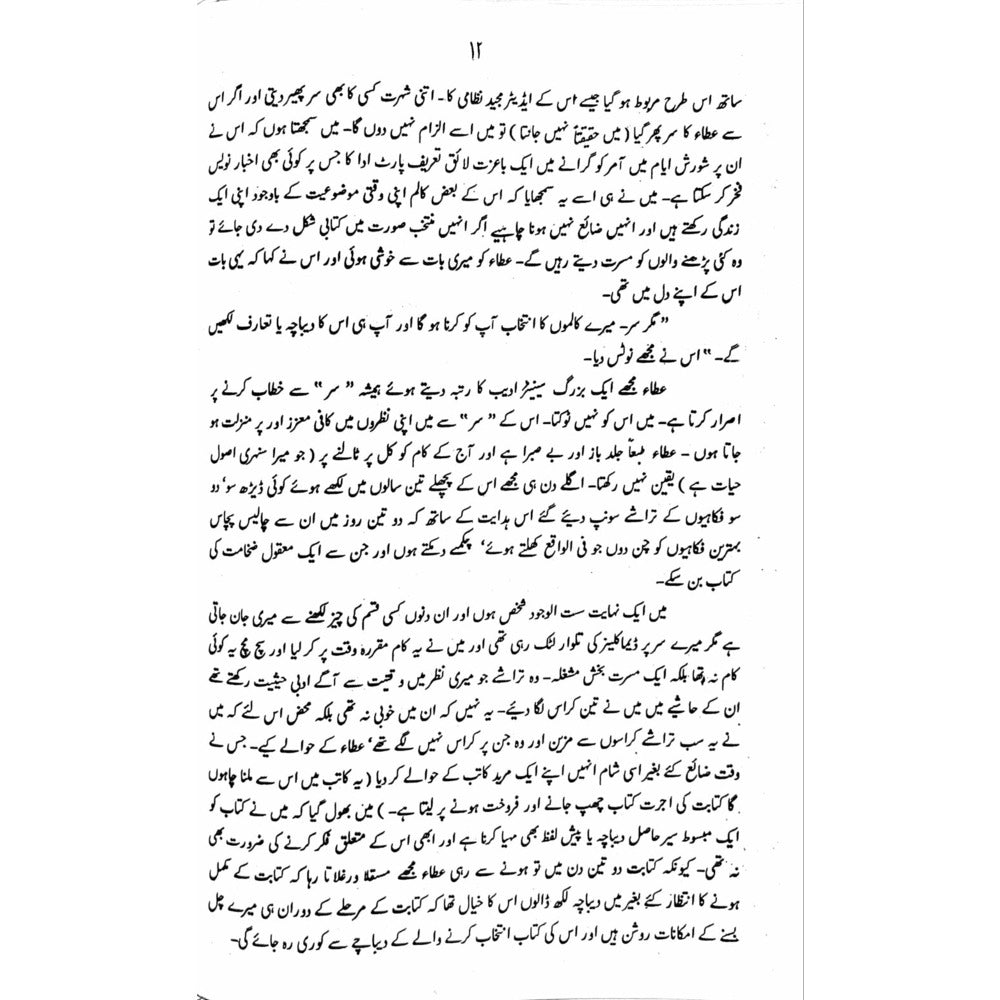 ۱۲
ساتھ اس طرح مربوط ہو گیا جیسے اس کے ایڈیٹر مجید نظامی کا۔ اتنی شہرت کسی کا بھی سر پھیر دیتی اور اگر اس
سے عطاء کا سر پھر گیا (میں حقیقتاً نہیں جانتا) تو میں اسے الزام نہیں دوں گا۔ میں سمجھتا ہوں کہ اس نے
ان پر شورش ایام میں آمر کو گرانے میں ایک باعزت لائق تعریف پارٹ ادا کا جس پر کوئی بھی اخبار نویس
فخر کر سکتا ہے۔ میں نے ہی اسے یہ سمجھایا کہ اس کے بعض کالم اپنی وقتی موضوعیت کے باوجود اپنی ایک
زندگی رکھتے ہیں اور انہیں ضائع نہیں ہونا چاہیے اگر انہیں منتخب صورت میں کتابی شکل دے دی جائے تو
وہ کئی پڑھنے والوں کو مسرت دیتے رہیں گے۔ عطاء کو میری بات سے خوشی ہوئی اور اس نے کہا کہ یہی بات
اس کے اپنے دل میں تھی۔
”مگر سر۔ میرے کالموں کا انتخاب آپ کو کرنا ہو گا اور آپ ہی اس کا دیباچہ یا تعارف لکھیں
گے۔“ اس نے مجھے نوٹس دیا۔
عطاء مجھے ایک بزرگ سینیئر ادیب کا رتبہ دیتے ہوئے ہمیشہ ”سر“ سے خطاب کرنے پر
اصرار کرتا ہے۔ میں اس کو نہیں ٹوکتا۔ اس کے ”سر“ سے میں اپنی نظروں میں کافی معزز اور پر منزلت ہو
جاتا ہوں ۔ عطاء طبعاً جلد باز اور بے صبرا ہے اور آج کے کام کو کل پر ٹالنے پر (جو میرا سنہری اصول
حیات ہے) یقین نہیں رکھتا۔ اگلے دن ہی مجھے اس کے پچھلے تین سالوں میں لکھے ہوئے کوئی ڈیڑھ سو‘ دو
سو فکاہیوں کے تراشے سونپ دیئے گئے اس ہدایت کے ساتھ کہ دو تین روز میں ان سے چالیس پچاس
بہترین فکاہیوں کو چن دوں جو فی الواقع کھلتے ہوئے‘ چمکتے دمکتے ہوں اور جن سے ایک معقول ضخامت کی
کتاب بن سکے۔
میں ایک نہایت ست الوجود شخص ہوں اور ان دنوں کسی قسم کی چیز لکھنے سے میری جان جاتی
ہے مگر میرے سر پر ڈیماکلیز کی تلوار لٹک رہی تھی اور میں نے یہ کام مقررہ وقت پر کر لیا اور سچ مچ یہ کوئی
کام نہ تھا بلکہ ایک مسرت بخش مشغلہ۔ وہ تراشے جو میری نظر میں وقتیت سے آگے ادبی حیثیت رکھتے تھے
ان کے حاشیے میں میں نے تین کراس لگا دئیے۔ یہ نہیں کہ ان میں خوبی نہ تھی بلکہ محض اس لئے کہ میں
نے یہ سب تراشے کراسوں سے مزین اور وہ جن پر کراس نہیں لگے تھے‘ عطاء کے حوالے کیے۔ جس نے
وقت ضائع کئے بغیر اسی شام انہیں اپنے ایک مرید کاتب کے حوالے کر دیا (یہ کاتب میں اس سے ملنا چاہوں
گا کتابت کی اجرت کتاب چھپ جانے اور فروخت ہونے پر لیتا ہے۔) میں بھول گیا کہ میں نے کتاب کو
ایک مبسوط سیر حاصل دیباچہ یا پیش لفظ بھی مہیا کرنا ہے اور ابھی اس کے متعلق فکر کرنے کی ضرورت بھی
نہ تھی۔ کیونکہ کتابت دو تین دن میں تو ہونے سے رہی عطاء مجھے مستقلاً ورغلاتا رہا کہ کتابت کے مکمل
ہونے کا انتظار کئے بغیر میں دیباچہ لکھ ڈالوں اس کا خیال تھا کہ کتابت کے مرحلے کے دوران ہی میرے چل
بسنے کے امکانات روشن ہیں اور اس کی کتاب انتخاب کرنے والے کے دیباچے سے کوری رہ جائے گی۔